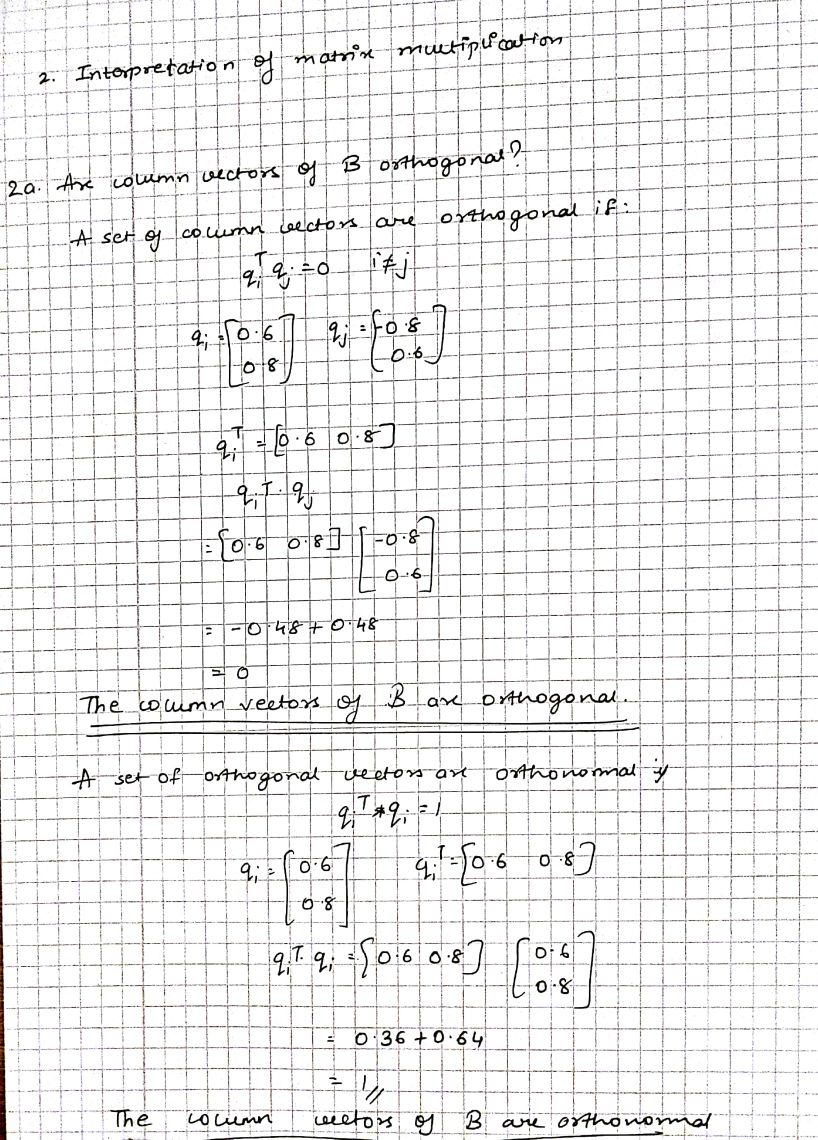 2. Interpretation of matrix multiplication
2a. Are column vectors of B orthogonal?
A set of column vectors are orthogonal if:
qᵢᵀ qⱼ = 0 i ≠ j
qᵢ = [0.6 0.8] qⱼ = [-0.8 0.6]
qᵢᵀ = [0.6 0.8]
qᵢᵀ · qⱼ
= [0.6 0.8] [-0.8 0.6]
= -0.48 + 0.48
= 0
The column vectors of B are orthogonal.
A set of orthogonal vectors are orthonormal if
qᵢᵀ * qᵢ = 1
qᵢ = [0.6 0.8] qᵢᵀ = [0.6 0.8]
qᵢᵀ · qᵢ = [0.6 0.8] [0.6 0.8]
= 0.36 + 0.64
= 1 //
The column vectors of B are orthonormal